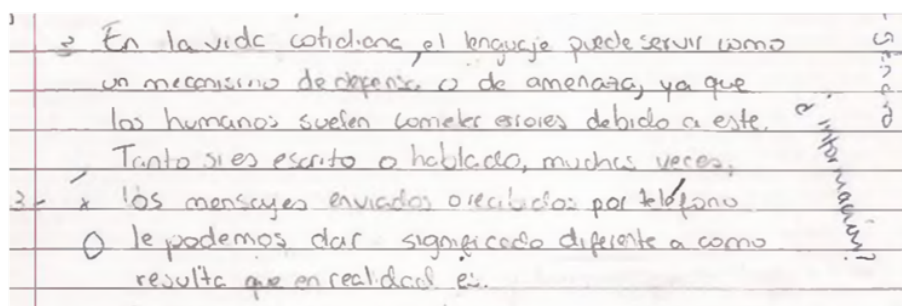 3 En la vida cotidiana, el lenguaje puede servir como
un mecanismo de defensa o de amenaza, ya que
los humanos suelen cometer errores debido a este.
Tanto si es escrito o hablado, muchas veces,
3- x los mensajes enviados o recibidos por teléfono
O le podemos dar significado diferente a como
resulta que en realidad es.
¿información?